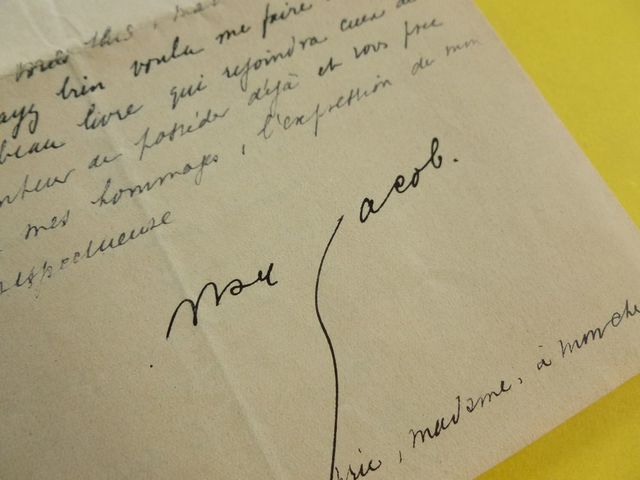 ayez bien voulu me faire
beau livre qui rejoindra ceux de
posséder déjà et vous prie
mes hommages, l'expression de mon
respectueuse
Max Jacob.
prie, madame, à mon